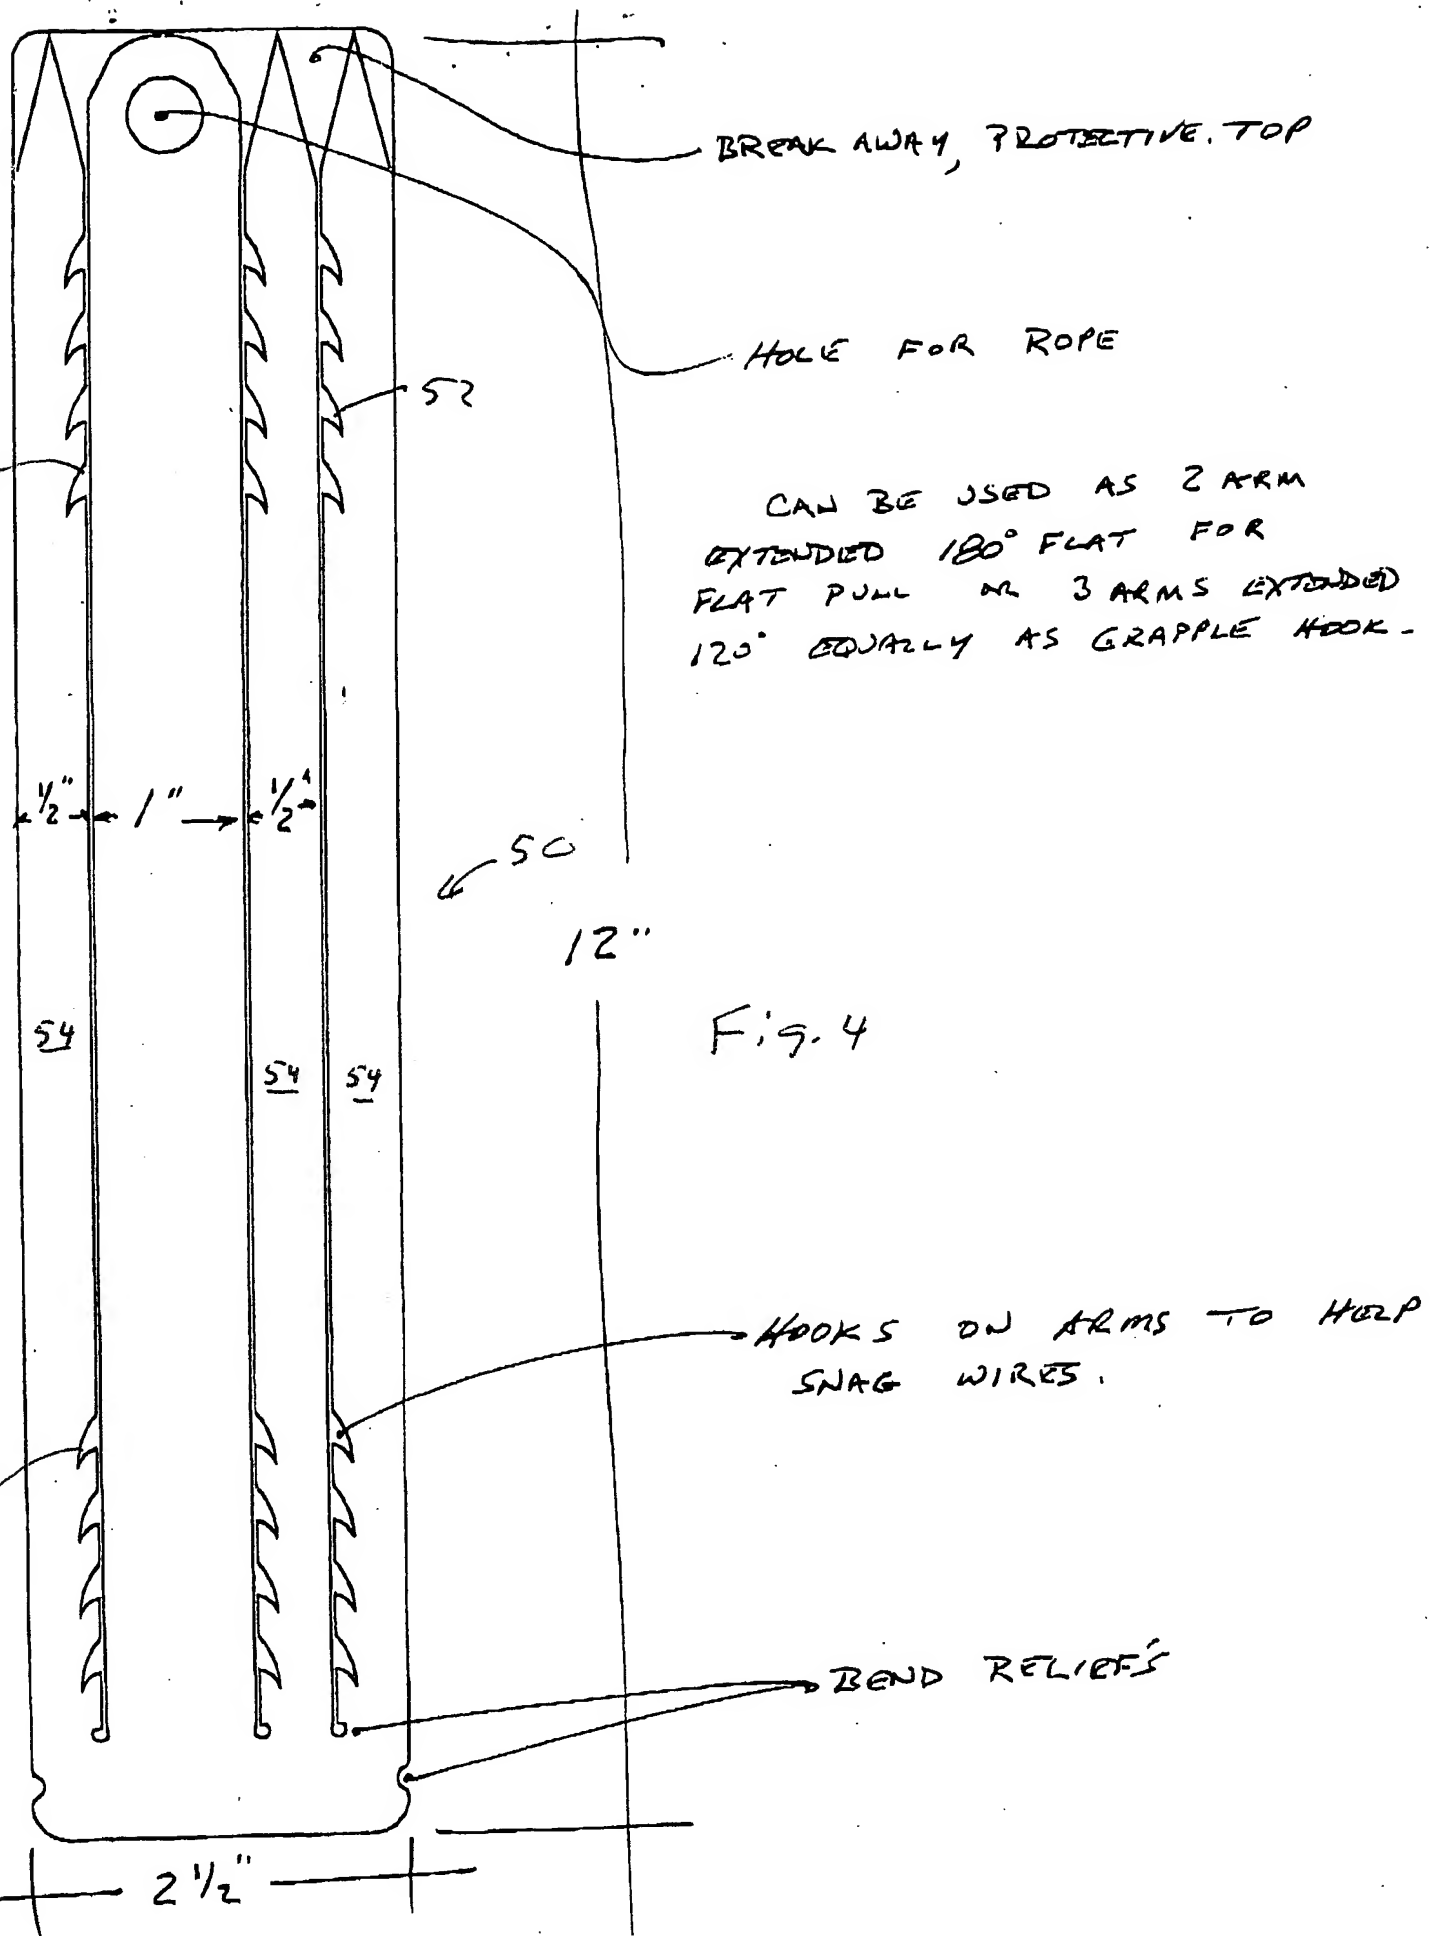 BREAK AWAY, PROTECTIVE. TOP
HOLE FOR ROPE
52
CAN BE USED AS 2 ARM
EXTENDED 180° FLAT FOR
FLAT PULL OR 3 ARMS EXTENDED
120° EQUALLY AS GRAPPLE HOOK.
1/2" 1" 1/2"
50
12"
Fig. 4
54 54 54
HOOKS ON ARMS TO HELP
SNAG WIRES.
BEND RELIEF'S
2 1/2"